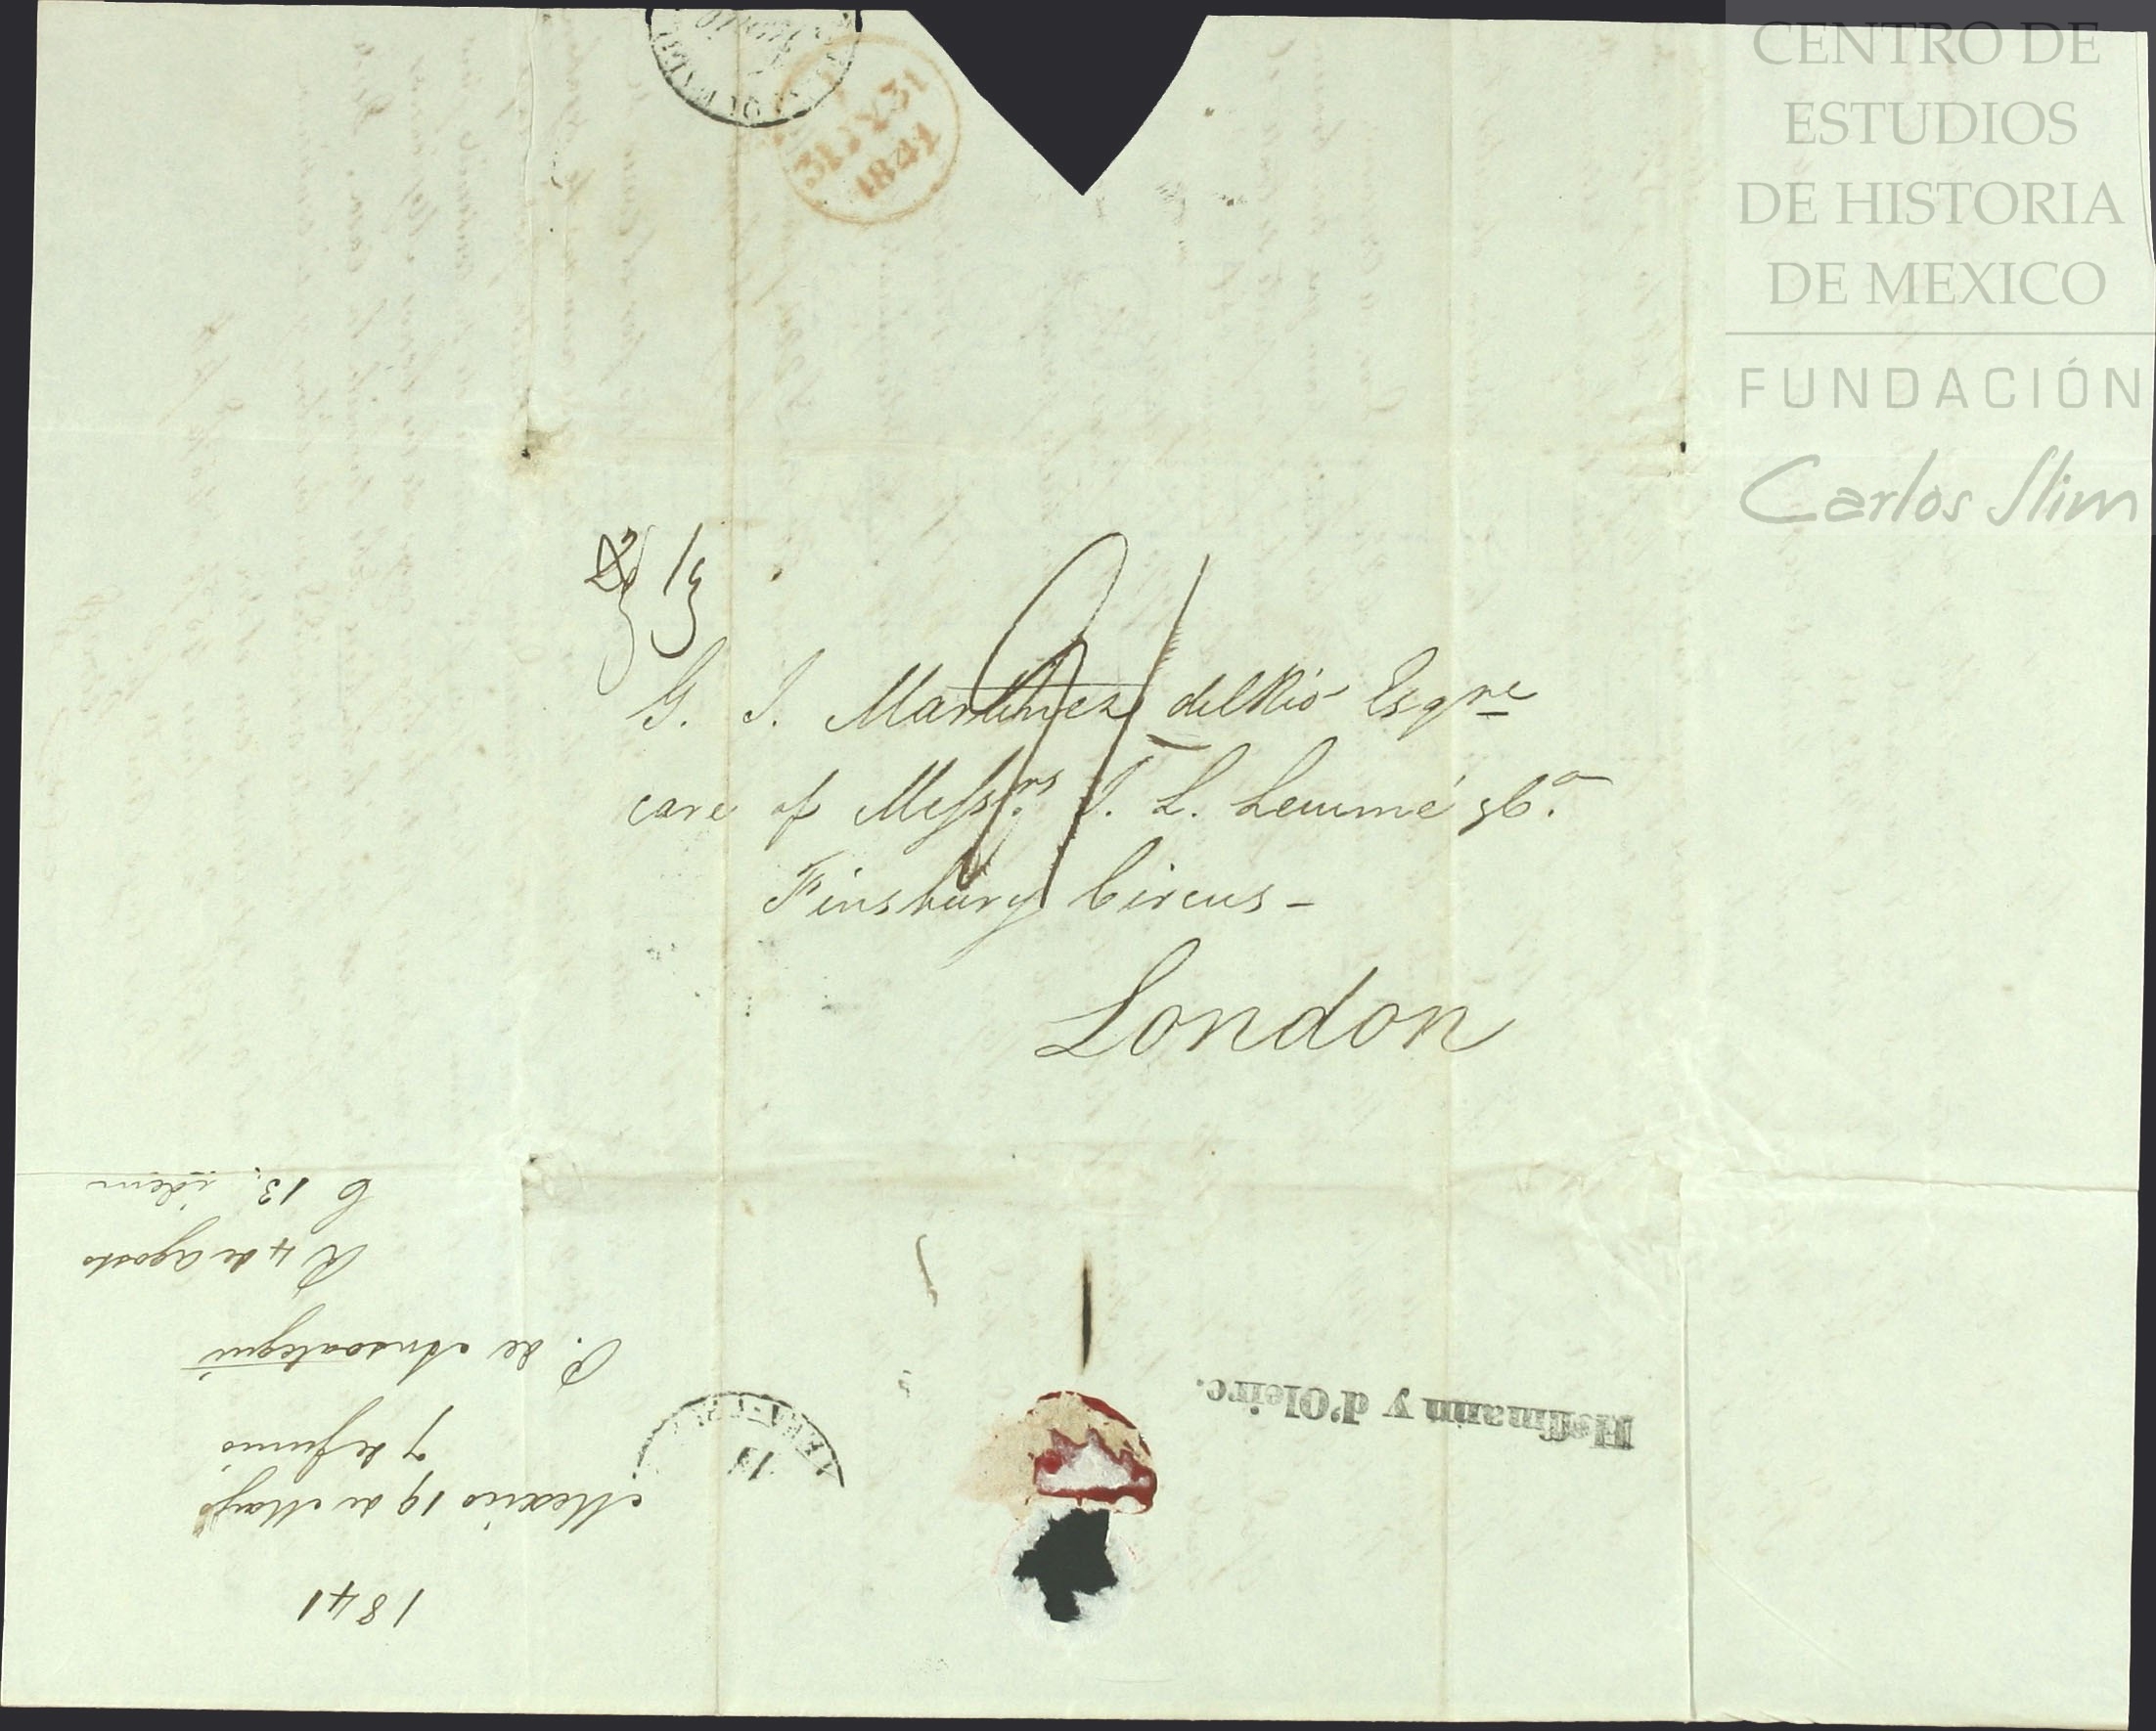 CENTRO DE
ESTUDIOS
DE HISTORIA
DE MEXICO
FUNDACIÓN
Carlos Slim
1841
G. J. Martinez del Rio Esqre
care of Messrs J. L. Lemmé &Co.
Finsbury Circus -
London
1841
Mexico 19 de Mayo
7 de Junio
P. de Ansoategui
R 4 de agosto
C 13, idem
Hoffmann y d'Oleire.